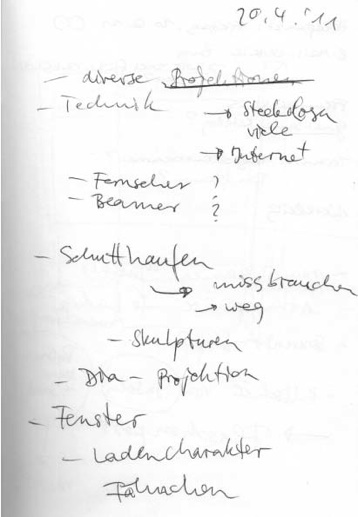 20.4.'11
- diverse Projektionen
- Technik → Steckdosen
viele
→ Internet
- Fernseher ?
- Beamer ?
- Schutthaufen
→ missbrauchen
→ weg
- Skulpturen
- Dia - Projektion
- Fenster
- Ladencharakter
Fähnchen